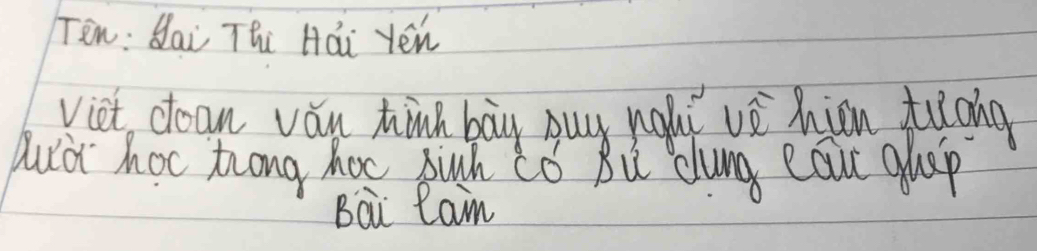 Tên: Lại Thị Hải Yến
Viết đoạn văn trình bày suy nghĩ về hiện tượng
lười học trong học sinh có sử dụng câu ghép
Bài làm